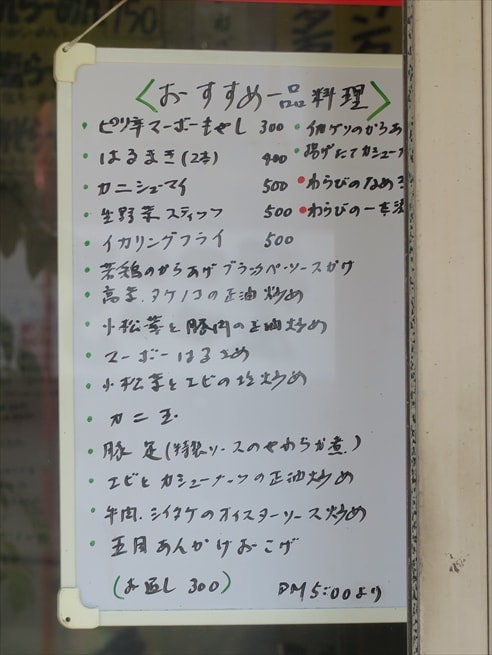 <おすすめ一品料理>
・ピリ辛マーボーもやし 300
・はるまき(2本) 400
・カニシューマイ 500
・生野菜スティック 500
・イカリングフライ 500
・若鶏のからあげブラックペーソースがけ
・高菜.タケノコの正油炒め
・小松菜と豚肉の正油炒め
・マーボーはるさめ
・小松菜とエビの塩炒め
・カニ玉
・豚足(特製ソースのやわらか煮)
・エビとカシューナッツの正油炒め
・牛肉.シイタケのオイスターソース炒め
・五目あんかけおこげ
(お通し 300) PM5:00より
・のからあ
・揚げ カシューナ
・わらびの
・わらびの一本漬
750